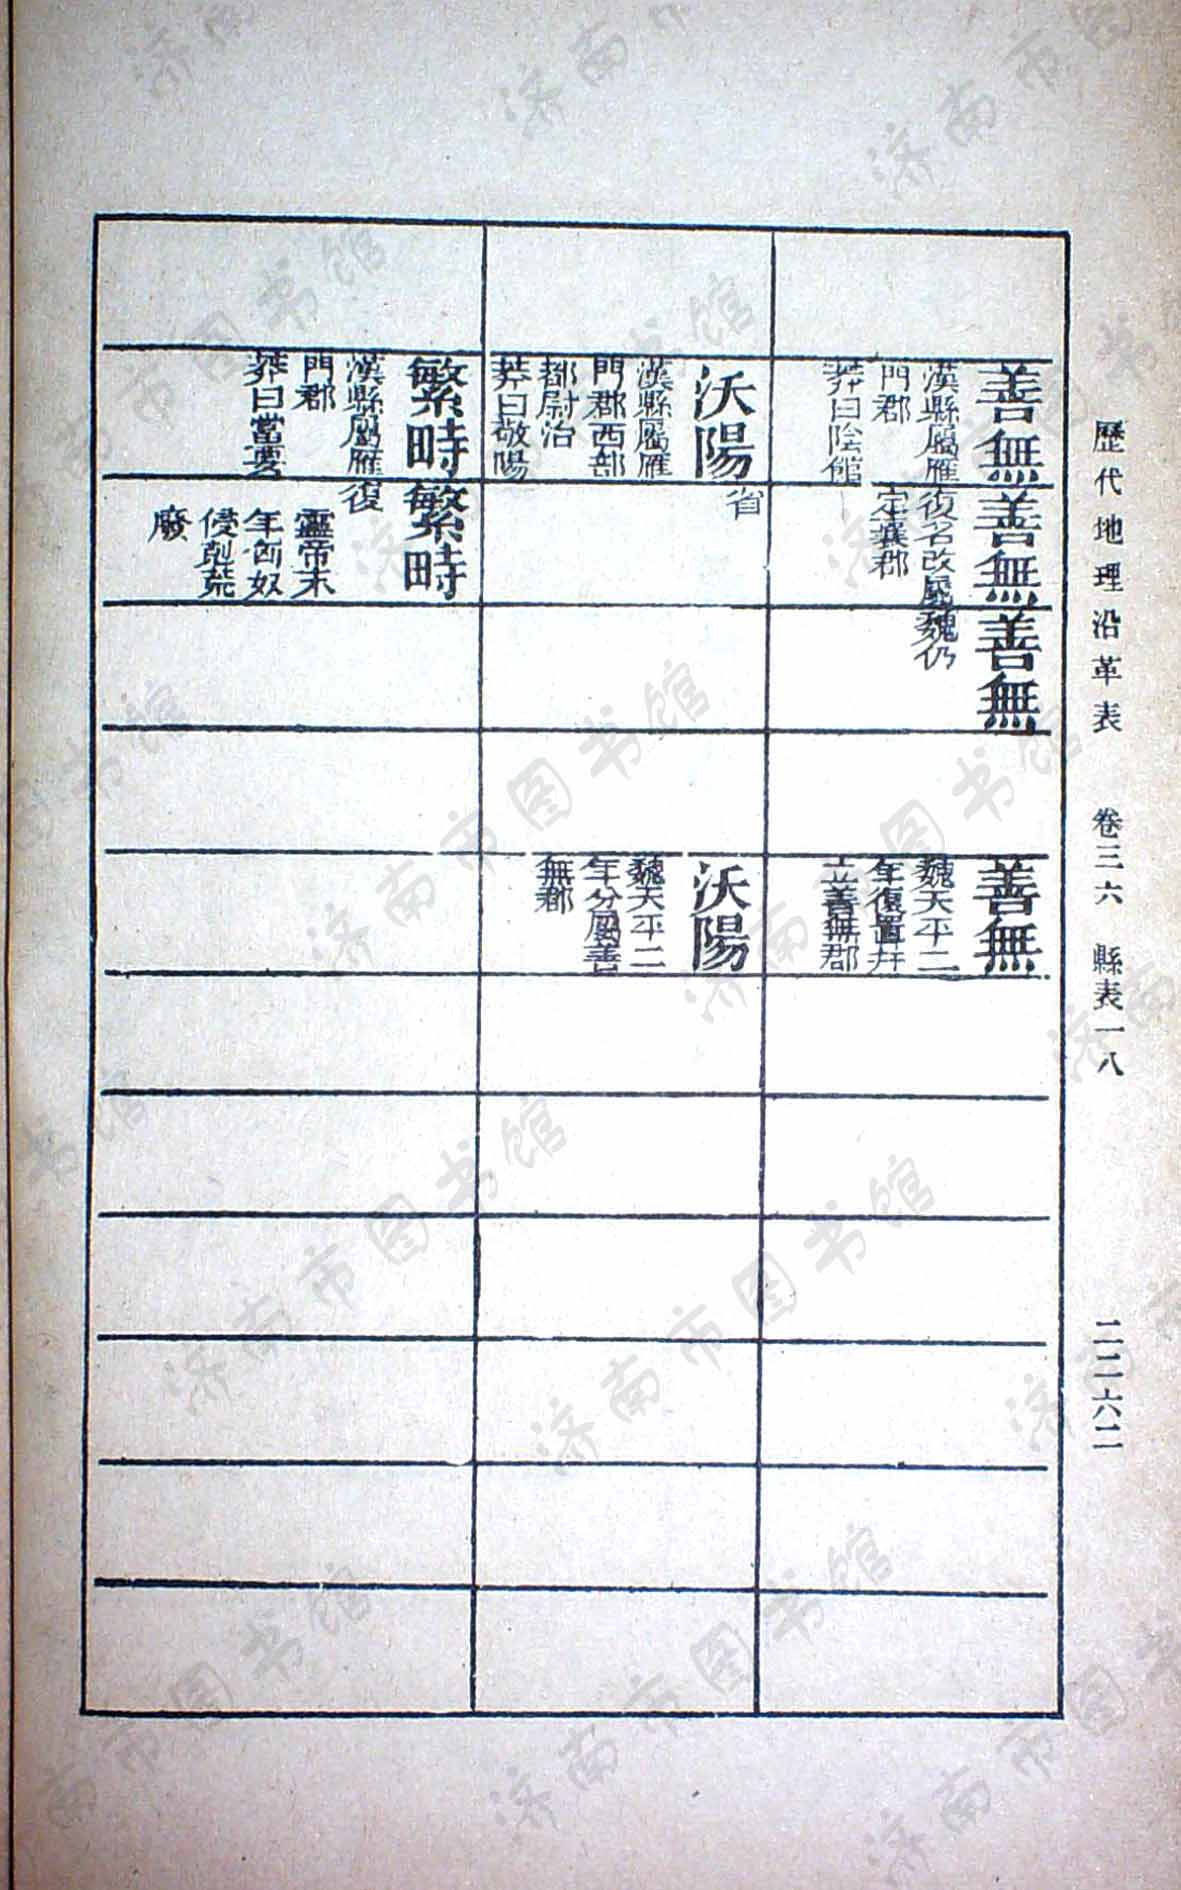 歷代地理沿革表 卷三六 縣表一八 二二六二
善無
漢縣屬雁
門郡
莽曰陰館
善無
復名改屬
定襄郡
善無
魏仍
善無
魏天平二
年復置幷
立善無郡
沃陽
漢縣屬雁
門郡西部
都尉治
莽曰敬陽
省
沃陽
魏天平二
年分屬善
無郡
繁畤
漢縣屬雁
門郡
莽曰當要
繁畤
復
靈帝末
年匈奴
侵剋荒
廢
济南市图书馆